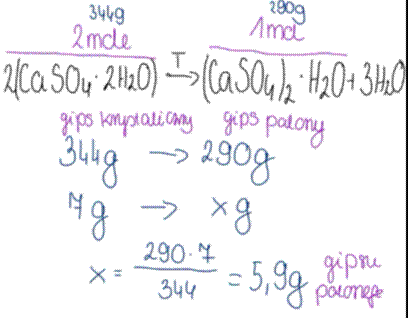 344g 290g
2mole 1mol
2(CaSO₄·2H₂O) T→ (CaSO₄)₂·H₂O+3H₂O
gips krystaliczny gips palony
344g → 290g
7g → xg
x = 290·7 / 344 = 5,9g gipsu palonego